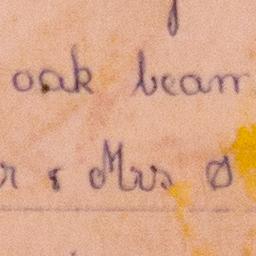 oak beam
r & Mrs O